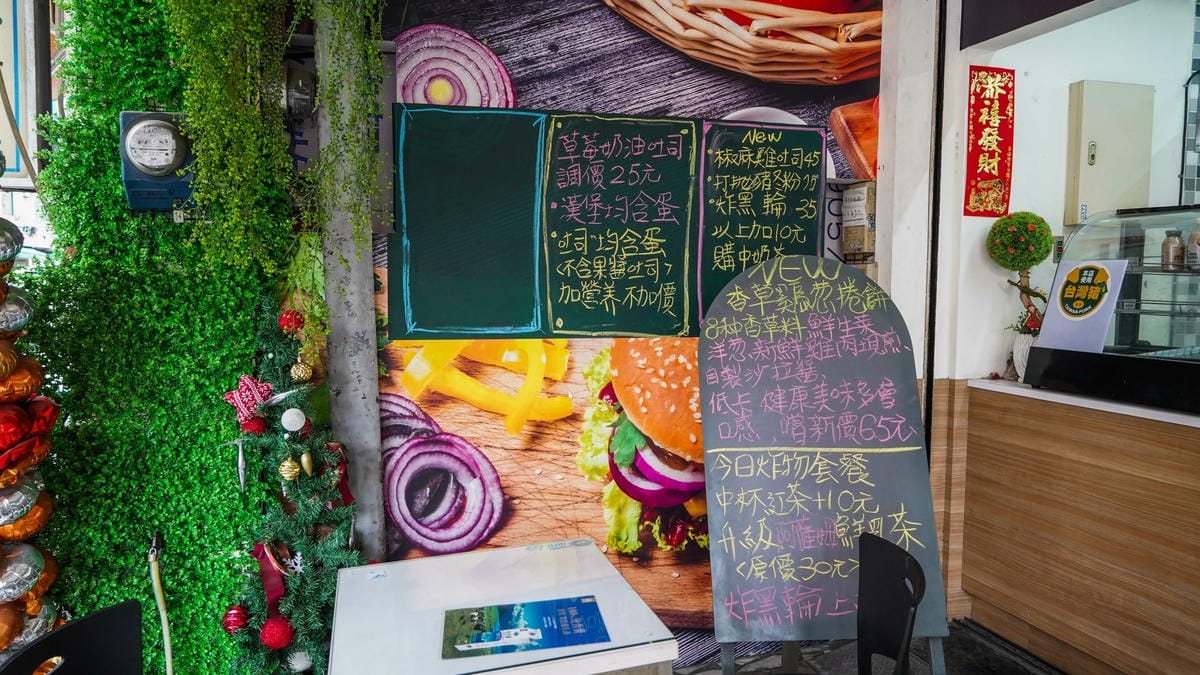 草莓奶油吐司
調價25元
•漢堡均含蛋
•吐司均含蛋
<不含果醬吐司>
加營養不加價
New
•椒麻雞吐司45
•打拋豬冬粉75
•炸黑輪 35
以上加10元
購中奶茶
NEW
香草雞蔥捲餅
8种香草料、鮮生菜
洋葱、新鮮雞肉現煎、
自製沙拉醬,
低卡、健康美味多層
口感,嚐新價65元
今日炸物套餐
中杯紅茶+10元
升級阿薩姆鮮奶茶
<原價30元>
炸黑輪上
恭禧發財
本店
使用
台灣豬
TAIWAN PORK